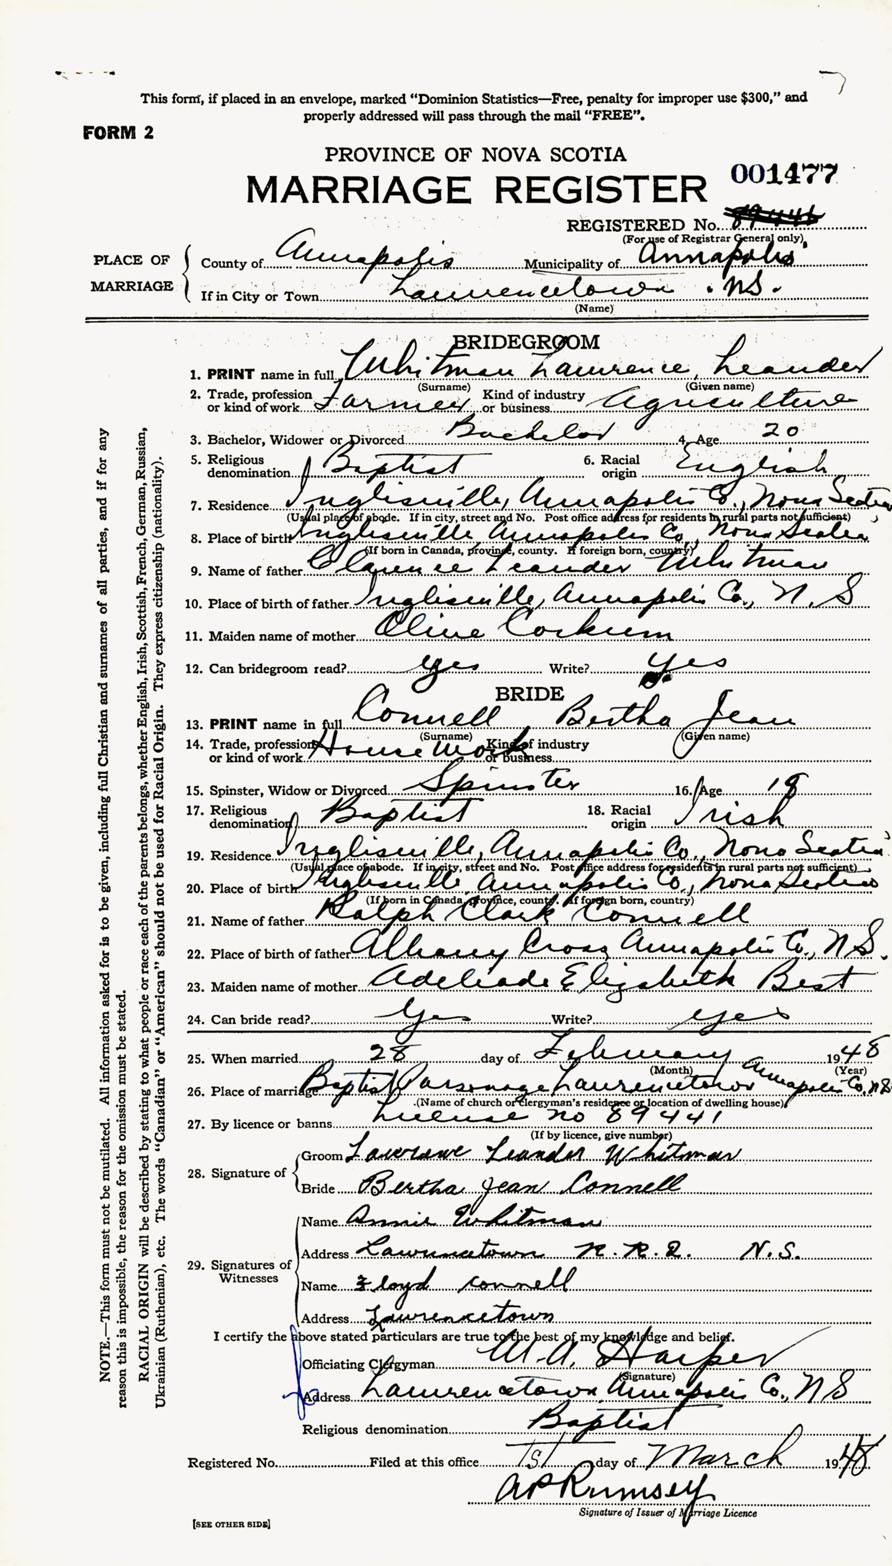 This form, if placed in an envelope, marked “Dominion Statistics—Free, penalty for improper use $300,” and
properly addressed will pass through the mail “FREE”.
FORM 2
PROVINCE OF NOVA SCOTIA
MARRIAGE REGISTER 001477
REGISTERED No.
(For use of Registrar General only)
PLACE OF MARRIAGE
County of Annapolis Municipality of Annapolis
If in City or Town Lawrencetown N.S.
(Name)
BRIDEGROOM
1. PRINT name in full Whitman Lawrence Leander
(Surname) (Given name)
2. Trade, profession or kind of work Farmer Kind of industry or business Agriculture
3. Bachelor, Widower or Divorced Bachelor 4. Age 20
5. Religious denomination Baptist 6. Racial origin English
7. Residence Inglisville, Annapolis Co., Nova Scotia
(Usual place of abode. If in city, street and No. Post office address for residents in rural parts not sufficient)
8. Place of birth Inglisville, Annapolis Co., Nova Scotia
(If born in Canada, province, county. If foreign born, country)
9. Name of father Clarence Leander Whitman
10. Place of birth of father Inglisville, Annapolis Co., N.S
11. Maiden name of mother Olive Corkum
12. Can bridegroom read? yes Write? yes
BRIDE
13. PRINT name in full Connell Bertha Jean
(Surname) (Given name)
14. Trade, profession or kind of work House Work Kind of industry or business
15. Spinster, Widow or Divorced Spinster 16. Age
17. Religious denomination Baptist 18. Racial origin Irish
19. Residence Inglisville, Annapolis Co., Nova Scotia
(Usual place of abode. If in city, street and No. Post office address for residents in rural parts not sufficient)
20. Place of birth Inglisville, Annapolis Co., Nova Scotia
(If born in Canada, province, county. If foreign born, country)
21. Name of father Ralph Clark Connell
22. Place of birth of father Albany Cross Annapolis Co., N.S.
23. Maiden name of mother Adeliade Elizabeth Best
24. Can bride read? Yes Write? yes
25. When married 28 day of February 1948
(Month) (Year)
26. Place of marriage Baptist Parsonage Lawrencetown Annapolis Co. N.S
(Name of church or clergyman's residence or location of dwelling house)
27. By licence or banns License no 89441
(If by licence, give number)
28. Signature of
Groom Lawrence Leander Whitman
Bride Bertha Jean Connell
29. Signatures of Witnesses
Name Annie Whitman
Address Lawrencetown R.R.2. N.S.
Name Floyd Connell
Address Lawrencetown
I certify the above stated particulars are true to the best of my knowledge and belief.
Officiating Clergyman W.A. Harper
(Signature)
Address Lawrencetown Annapolis Co., N.S
Religious denomination Baptist
Registered No. Filed at this office 1st day of March 1948
A P Rumsey
Signature of Issuer of Marriage Licence
[SEE OTHER SIDE]
NOTE.—This form must not be mutilated. All information asked for is to be given, including full Christian and surnames of all parties, and if for any
reason this is impossible, the reason for the omission must be stated.
RACIAL ORIGIN will be described by stating to what people or race each of the parents belongs, whether English, Irish, Scottish, French, German, Russian,
Ukrainian (Ruthenian), etc. The words “Canadian” or “American” should not be used for Racial Origin. They express citizenship (nationality).